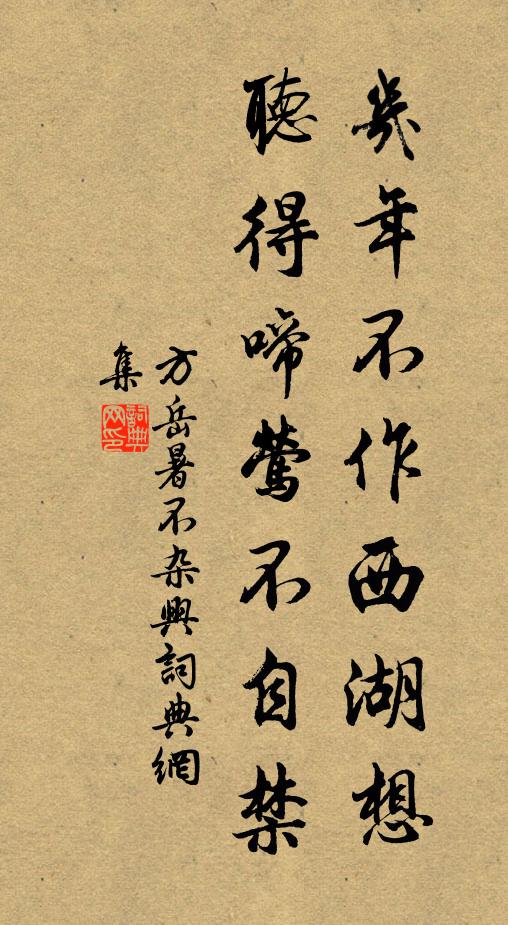 幾年不作西湖想
聽得啼鶯不自禁
方岳暑不杂興詞典網
集
詞典網印